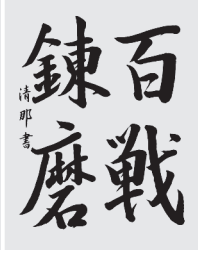 百戦
錬磨
清那書